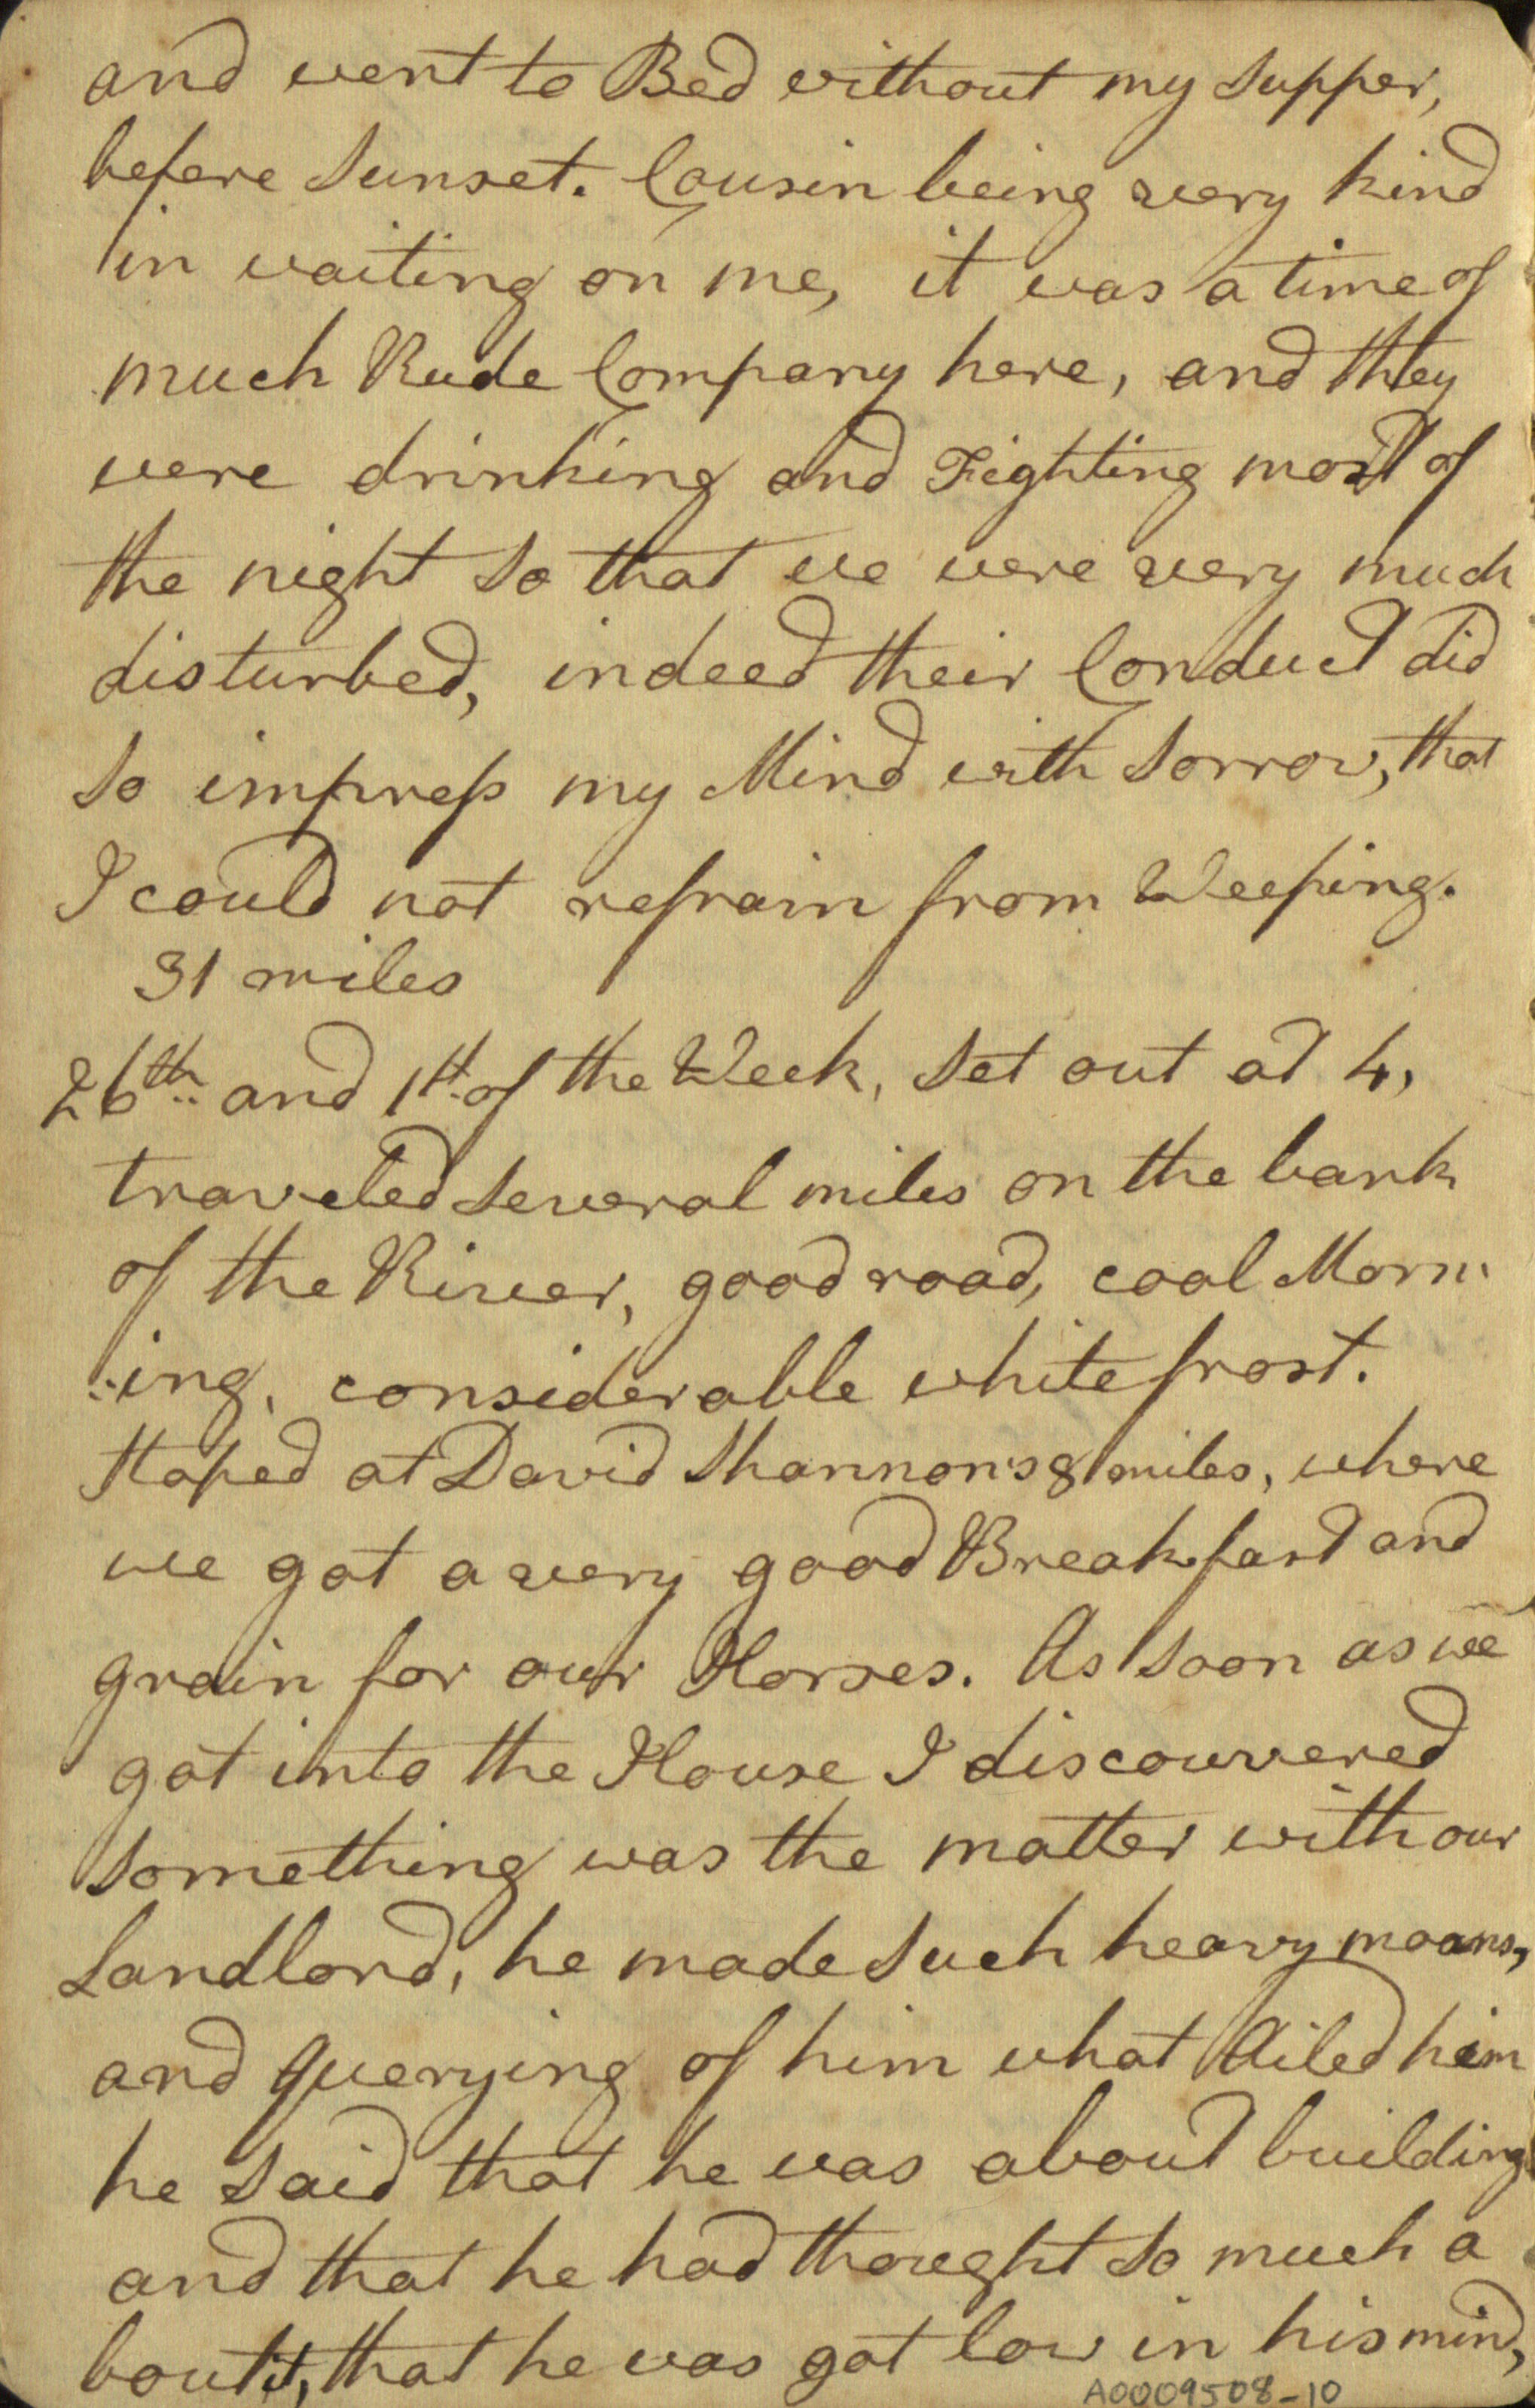 and went to Bed without my supper,
before Sunset. Cousin being very kind
in waiting on me, it was a time of
much Rude Company here, and they
were drinking and Fighting most of
the night so that we were very much
disturbed, indeed their Conduct did
so impress my Mind with sorrow, that
I could not refrain from Weeping.
31 miles
26th and 1st of the Week, set out at 4,
traveled several miles on the bank
of the River, good road, cool Morn
:ing, considerable white frost.
Stoped at David Shannon's 8 miles, where
we got a very good Breakfast and
grain for our Horses. As soon as we
got into the House I discouvered
something was the matter with our
Landlord, he made such heavy moans,
and querying of him what Ailed him
he said that he was about building
and that he had thought so much a
bout it, that he was got low in his mind,
A0009508-10